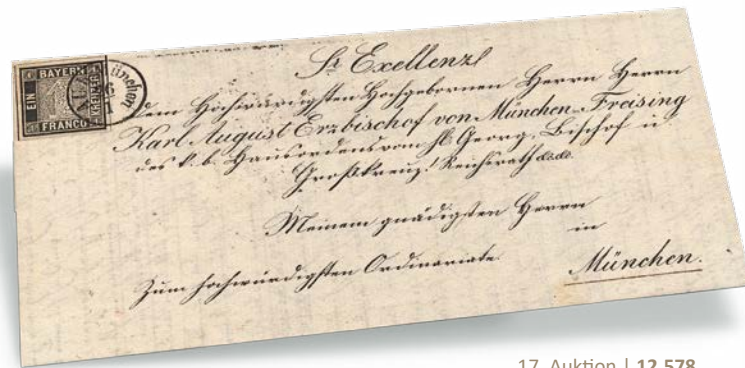 BAYERN
EIN
KREUZER
FRANCO
1
München
Sr Exellenz
dem Hochwürdigsten Hochgebornen Herrn Herrn
Karl August Erzbischof von München-Freising
des k. b. Hausordens vom hl. Georg, Bischof u.
Großkreuz! Reichsrath &c.&c.
Meinem gnädigsten Herrn
in
Zum hochwürdigsten Ordinariate.
München.
17. Auktion | 12.578